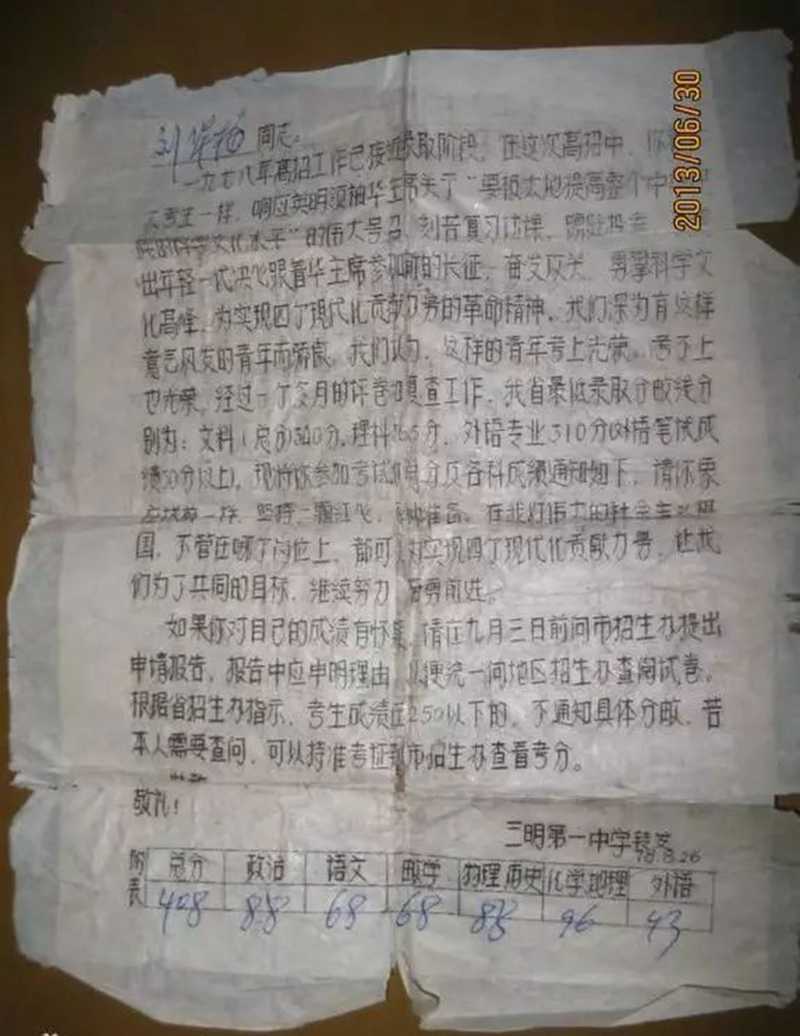 2013/06/30
刘 同志。
一九七八年高招工作已接近录取阶段，在这次高招中，你
考生一样，响应英明领袖华主席关于"要极大地提高整个中华
民族的科学文化水平"的伟大号召，刻苦复习功课，踊跃投考，
出年轻一代决心跟着华主席参加新的长征，奋发攻关，勇攀科学文
化高峰，为实现四个现代化贡献力量的革命精神。我们深为有这样
意气风发的青年而骄傲。我们认为，这样的青年考上光荣，考不上
也光荣。经过一个多月的评卷和复查工作，我省最低录取分数线分
别为：文科（总分）300分，理科 分，外语专业310分（外语笔试成
绩50分以上）。现将你参加考试的总分及各科成绩通知如下，请你象
一样，坚持一颗红心， 准备。在我们伟大的社会主义祖
国，不管在哪个岗位上，都可 为实现四个现代化贡献力量，让我
们为了共同的目标，继续努力 奋勇前进。
如果你对自己的成绩有怀疑，请在九月三日前向市招生办提出
申请报告，报告中应申明理由，以便统一向地区招生办查阅试卷。
根据省招生办指示，考生成绩在250以下的，不通知具体分数，若
本人需要查问，可以持准考证到市招生办查看考分。
此致
敬礼！
三明第一中学
78.8.26
附表 总分 政治 语文 数学 物理 历史 化学 地理 外语
408 88 68 68 88 96 43